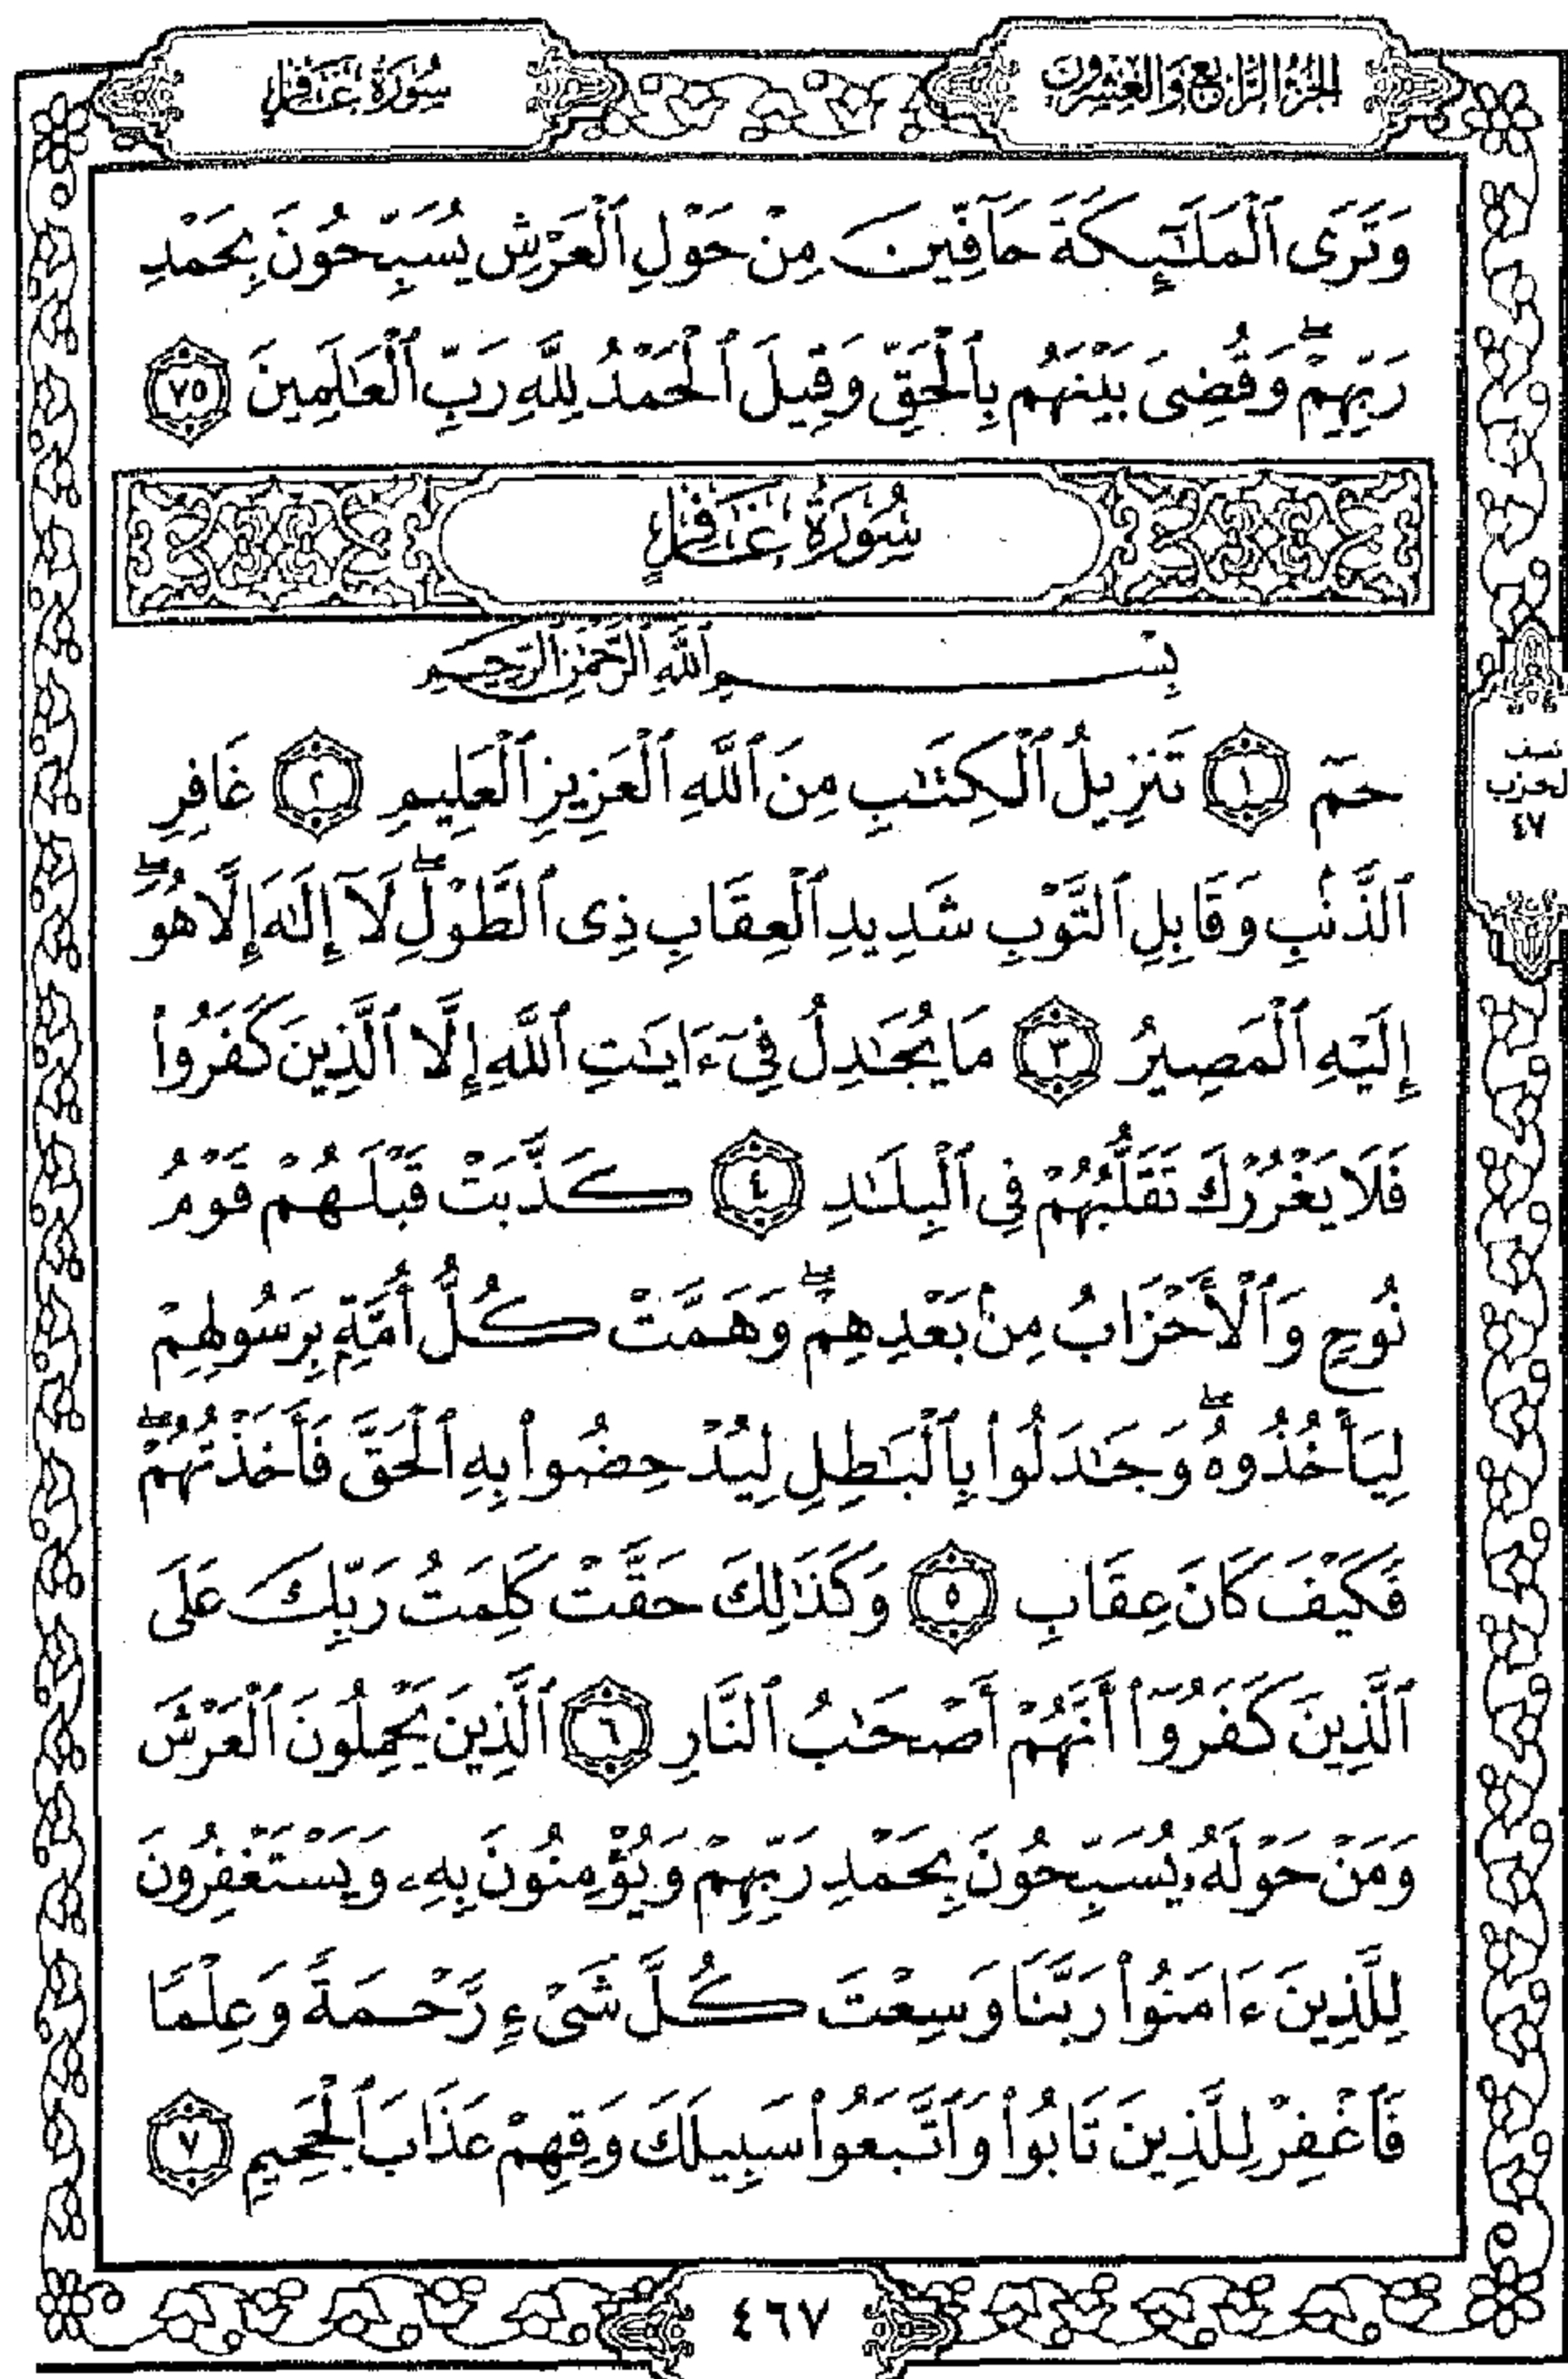 الجزء الرابع والعشرون
سورة غافر
وَتَرَى ٱلْمَلَٰٓئِكَةَ حَآفِّينَ مِنْ حَوْلِ ٱلْعَرْشِ يُسَبِّحُونَ بِحَمْدِ
رَبِّهِمْۖ وَقُضِىَ بَيْنَهُم بِٱلْحَقِّ وَقِيلَ ٱلْحَمْدُ لِلَّهِ رَبِّ ٱلْعَٰلَمِينَ ٧٥
سُورَةُ غَافِرٍ
بِسْمِ ٱللَّهِ ٱلرَّحْمَٰنِ ٱلرَّحِيمِ
حمٓ ١ تَنزِيلُ ٱلْكِتَٰبِ مِنَ ٱللَّهِ ٱلْعَزِيزِ ٱلْعَلِيمِ ٢ غَافِرِ
ٱلذَّنۢبِ وَقَابِلِ ٱلتَّوْبِ شَدِيدِ ٱلْعِقَابِ ذِى ٱلطَّوْلِۖ لَآ إِلَٰهَ إِلَّا هُوَۖ
إِلَيْهِ ٱلْمَصِيرُ ٣ مَا يُجَٰدِلُ فِىٓ ءَايَٰتِ ٱللَّهِ إِلَّا ٱلَّذِينَ كَفَرُوا۟
فَلَا يَغْرُرْكَ تَقَلُّبُهُمْ فِى ٱلْبِلَٰدِ ٤ كَذَّبَتْ قَبْلَهُمْ قَوْمُ
نُوحٍ وَٱلْأَحْزَابُ مِنۢ بَعْدِهِمْۖ وَهَمَّتْ كُلُّ أُمَّةٍۭ بِرَسُولِهِمْ
لِيَأْخُذُوهُۖ وَجَٰدَلُوا۟ بِٱلْبَٰطِلِ لِيُدْحِضُوا۟ بِهِ ٱلْحَقَّ فَأَخَذْتُهُمْۖ
فَكَيْفَ كَانَ عِقَابِ ٥ وَكَذَٰلِكَ حَقَّتْ كَلِمَتُ رَبِّكَ عَلَى
ٱلَّذِينَ كَفَرُوٓا۟ أَنَّهُمْ أَصْحَٰبُ ٱلنَّارِ ٦ ٱلَّذِينَ يَحْمِلُونَ ٱلْعَرْشَ
وَمَنْ حَوْلَهُۥ يُسَبِّحُونَ بِحَمْدِ رَبِّهِمْ وَيُؤْمِنُونَ بِهِۦ وَيَسْتَغْفِرُونَ
لِلَّذِينَ ءَامَنُوا۟ رَبَّنَا وَسِعْتَ كُلَّ شَىْءٍ رَّحْمَةً وَعِلْمًا
فَٱغْفِرْ لِلَّذِينَ تَابُوا۟ وَٱتَّبَعُوا۟ سَبِيلَكَ وَقِهِمْ عَذَابَ ٱلْجَحِيمِ ٧
نصف
الحزب
٤٧
٤٦٧